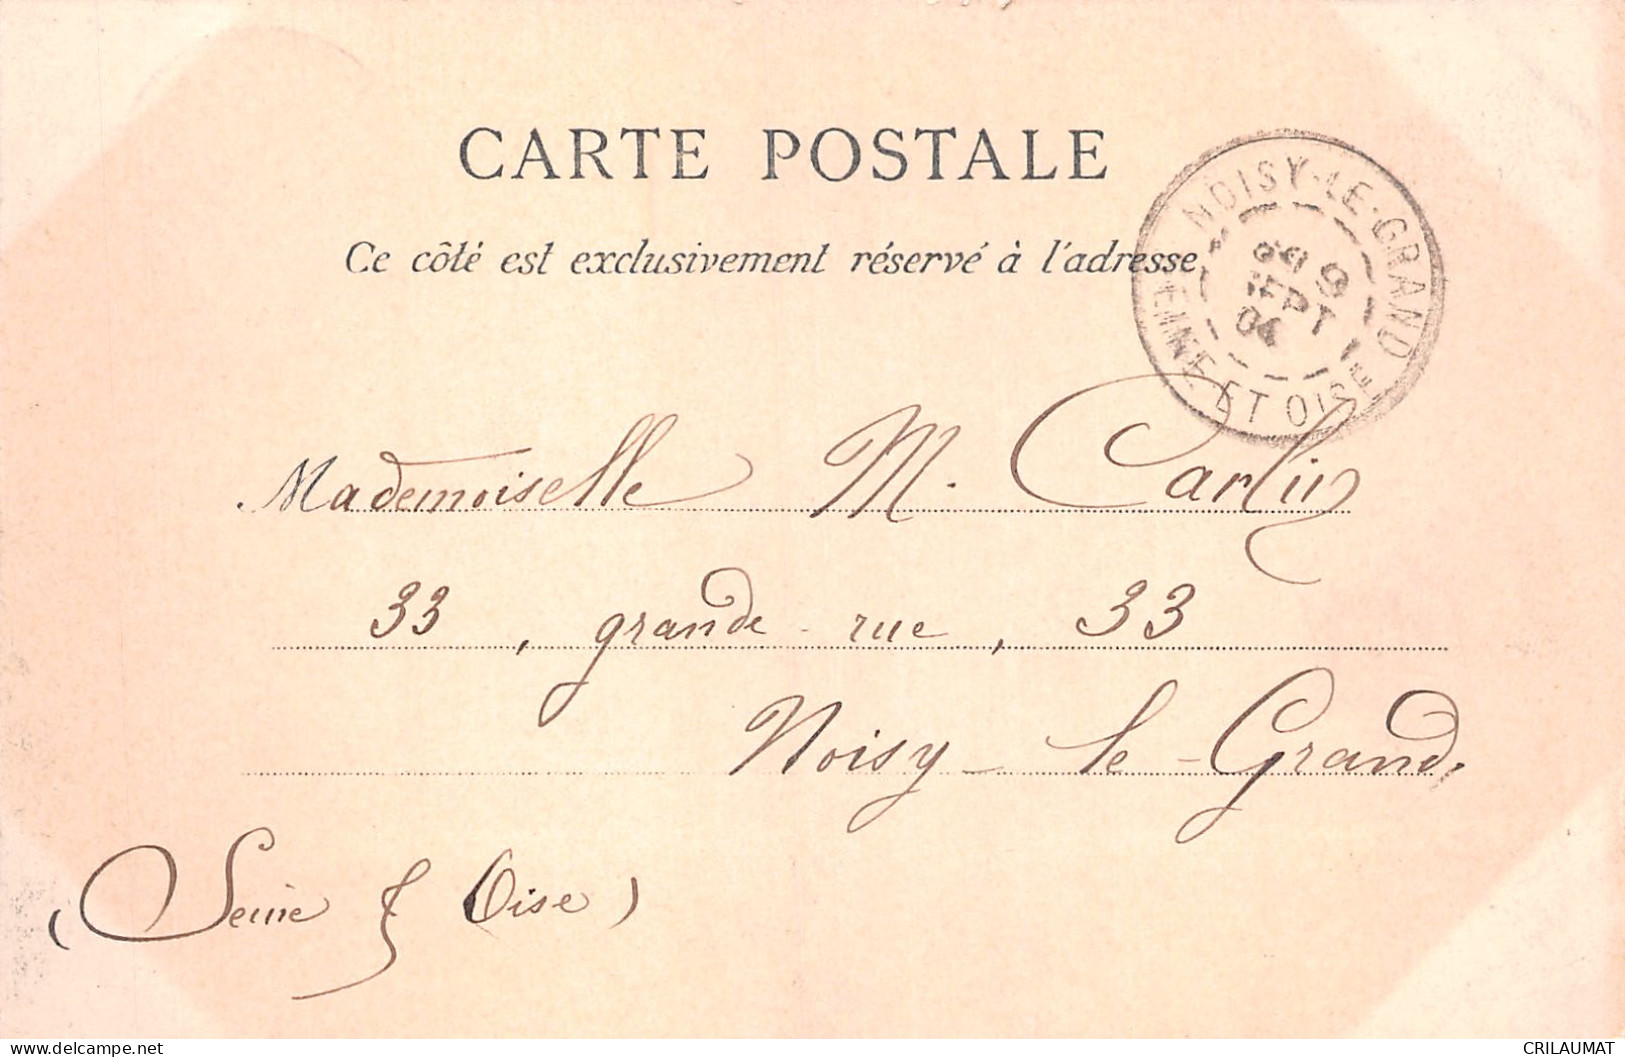 CARTE POSTALE
Ce côté est exclusivement réservé à l'adresse
NOISY-LE-GRAND
9
SEPT
04
SEINE ET OISE
Mademoiselle M. Carlin
33, grande rue, 33
Noisy-le-Grand,
(Seine & Oise)
delcampe.net
CRILAUMAT